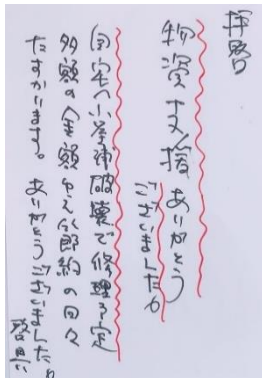 拝啓
物資支援ありがとう
ございました。
自宅小学破壊で修理予定
多額の金額ゆえ節約の日々
たすかります。ありがとうございました。